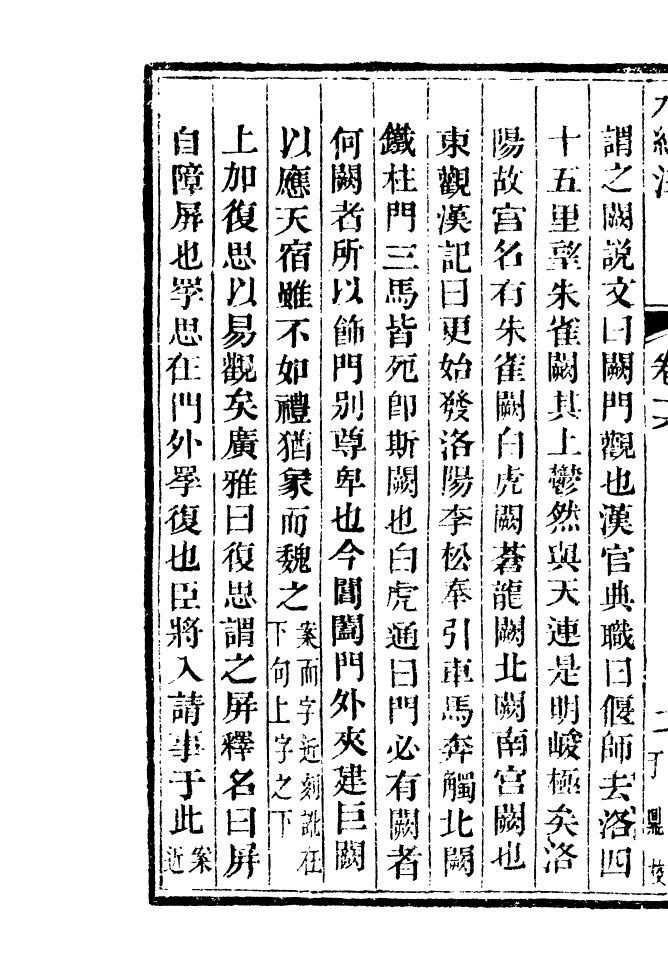 水經注
卷十六
丁鼎校
謂之闕說文曰闕門觀也漢官典職曰偃師去洛四
十五里望朱雀闕其上鬱然與天連是明峻極矣洛
陽故宮名有朱雀闕白虎闕蒼龍闕北闕南宮闕也
東觀漢記曰更始發洛陽李松奉引車馬奔觸北闕
鐵柱門三馬皆死卽斯闕也白虎通曰門必有闕者
何闕者所以飾門别尊卑也今閶闔門外夾建巨闕
以應天宿雖不如禮猶象而魏之案而字近刻訛在下句上字之下
上加復思以易觀矣廣雅曰復思謂之屏釋名曰屏
自障屏也罘思在門外罘復也臣將入請事于此案近